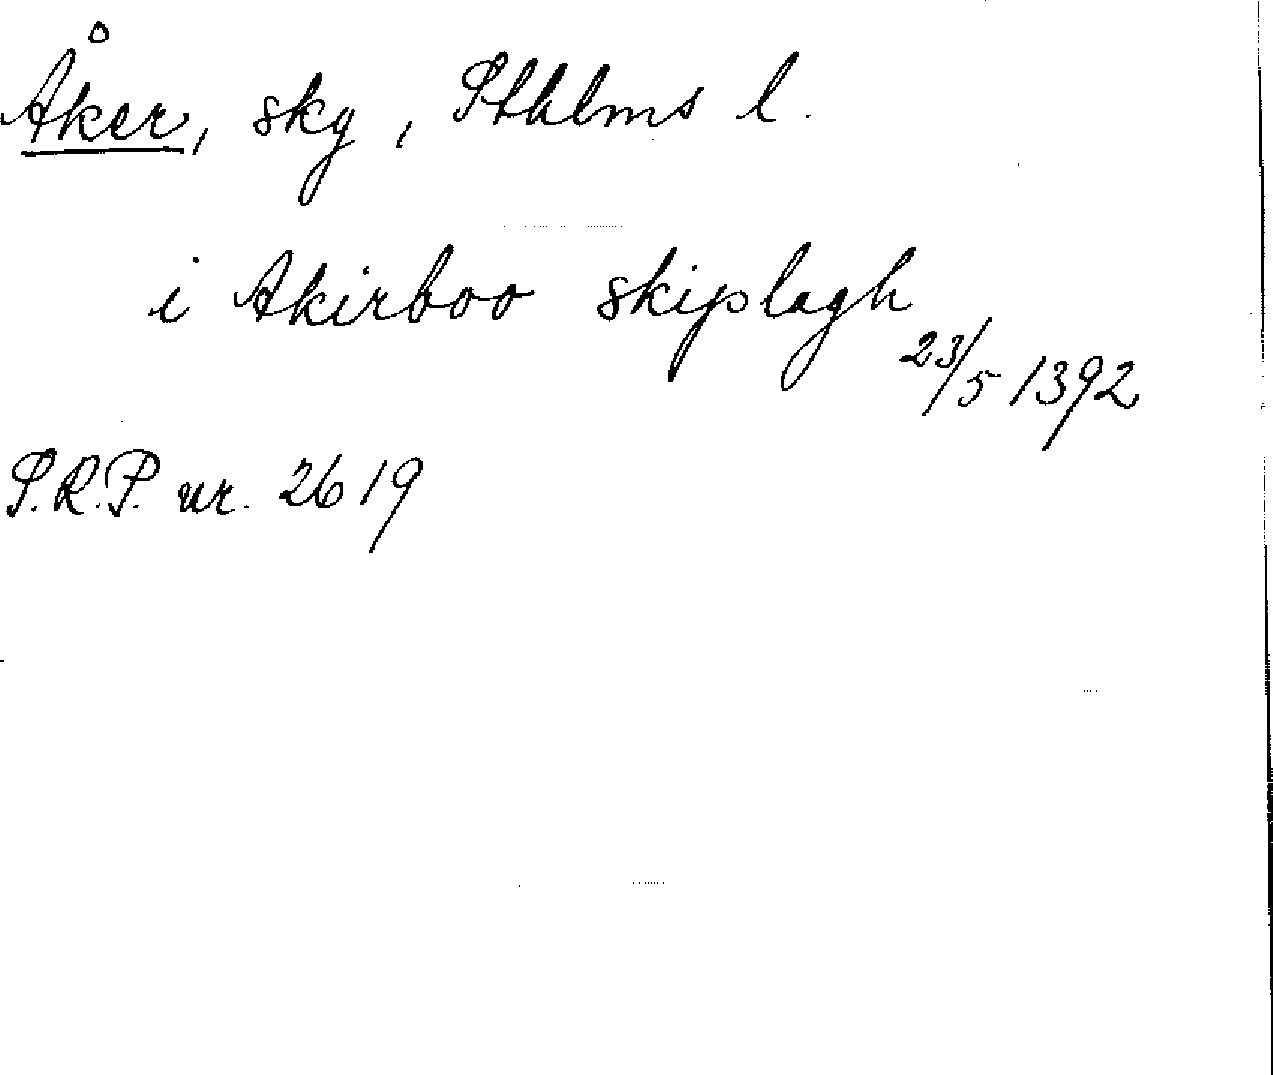 Åker, skg, Sthlms l.
i Akirboo skiplagh
23/5 1392
S.R.P. nr. 2619